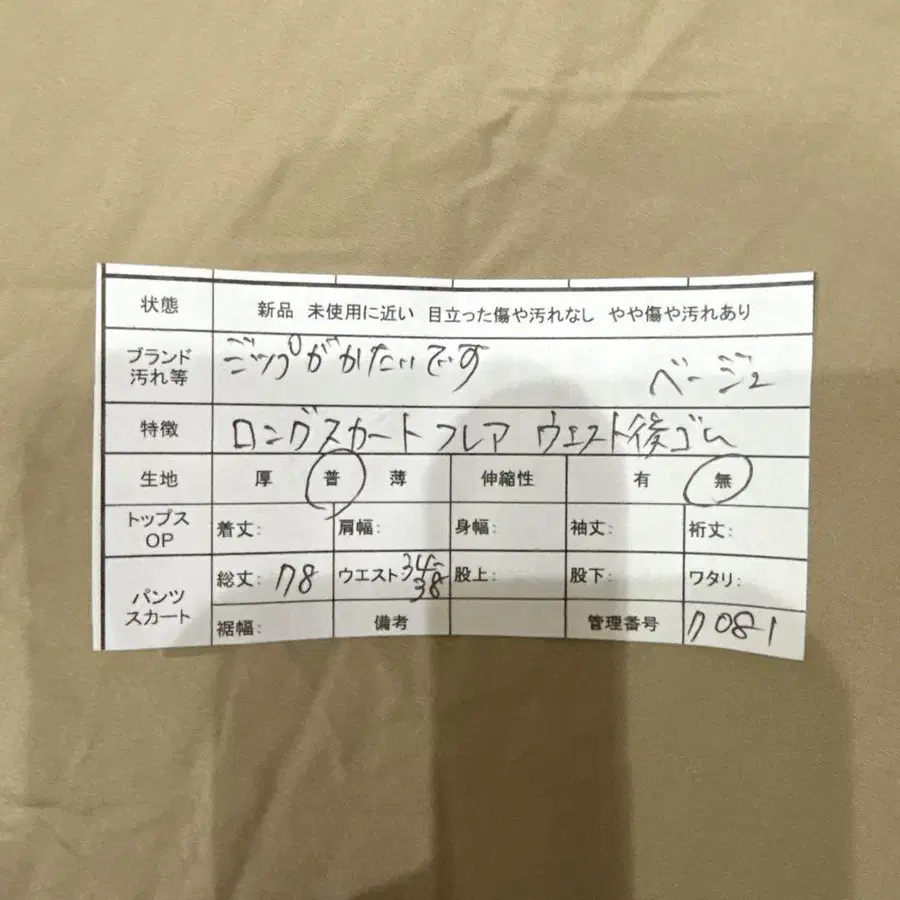 状態 新品 未使用に近い 目立った傷や汚れなし やや傷や汚れあり
ブランド 汚れ等 ジップがかたいです ベージュ
特徴 ロングスカート フレア ウエスト後ゴム
生地 厚 普 薄 伸縮性 有 無
トップス OP 着丈: 肩幅: 身幅: 袖丈: 裄丈:
パンツ スカート 総丈: 78 ウエスト 34-38 股上: 股下: ワタリ:
裾幅: 備考 管理番号 7081